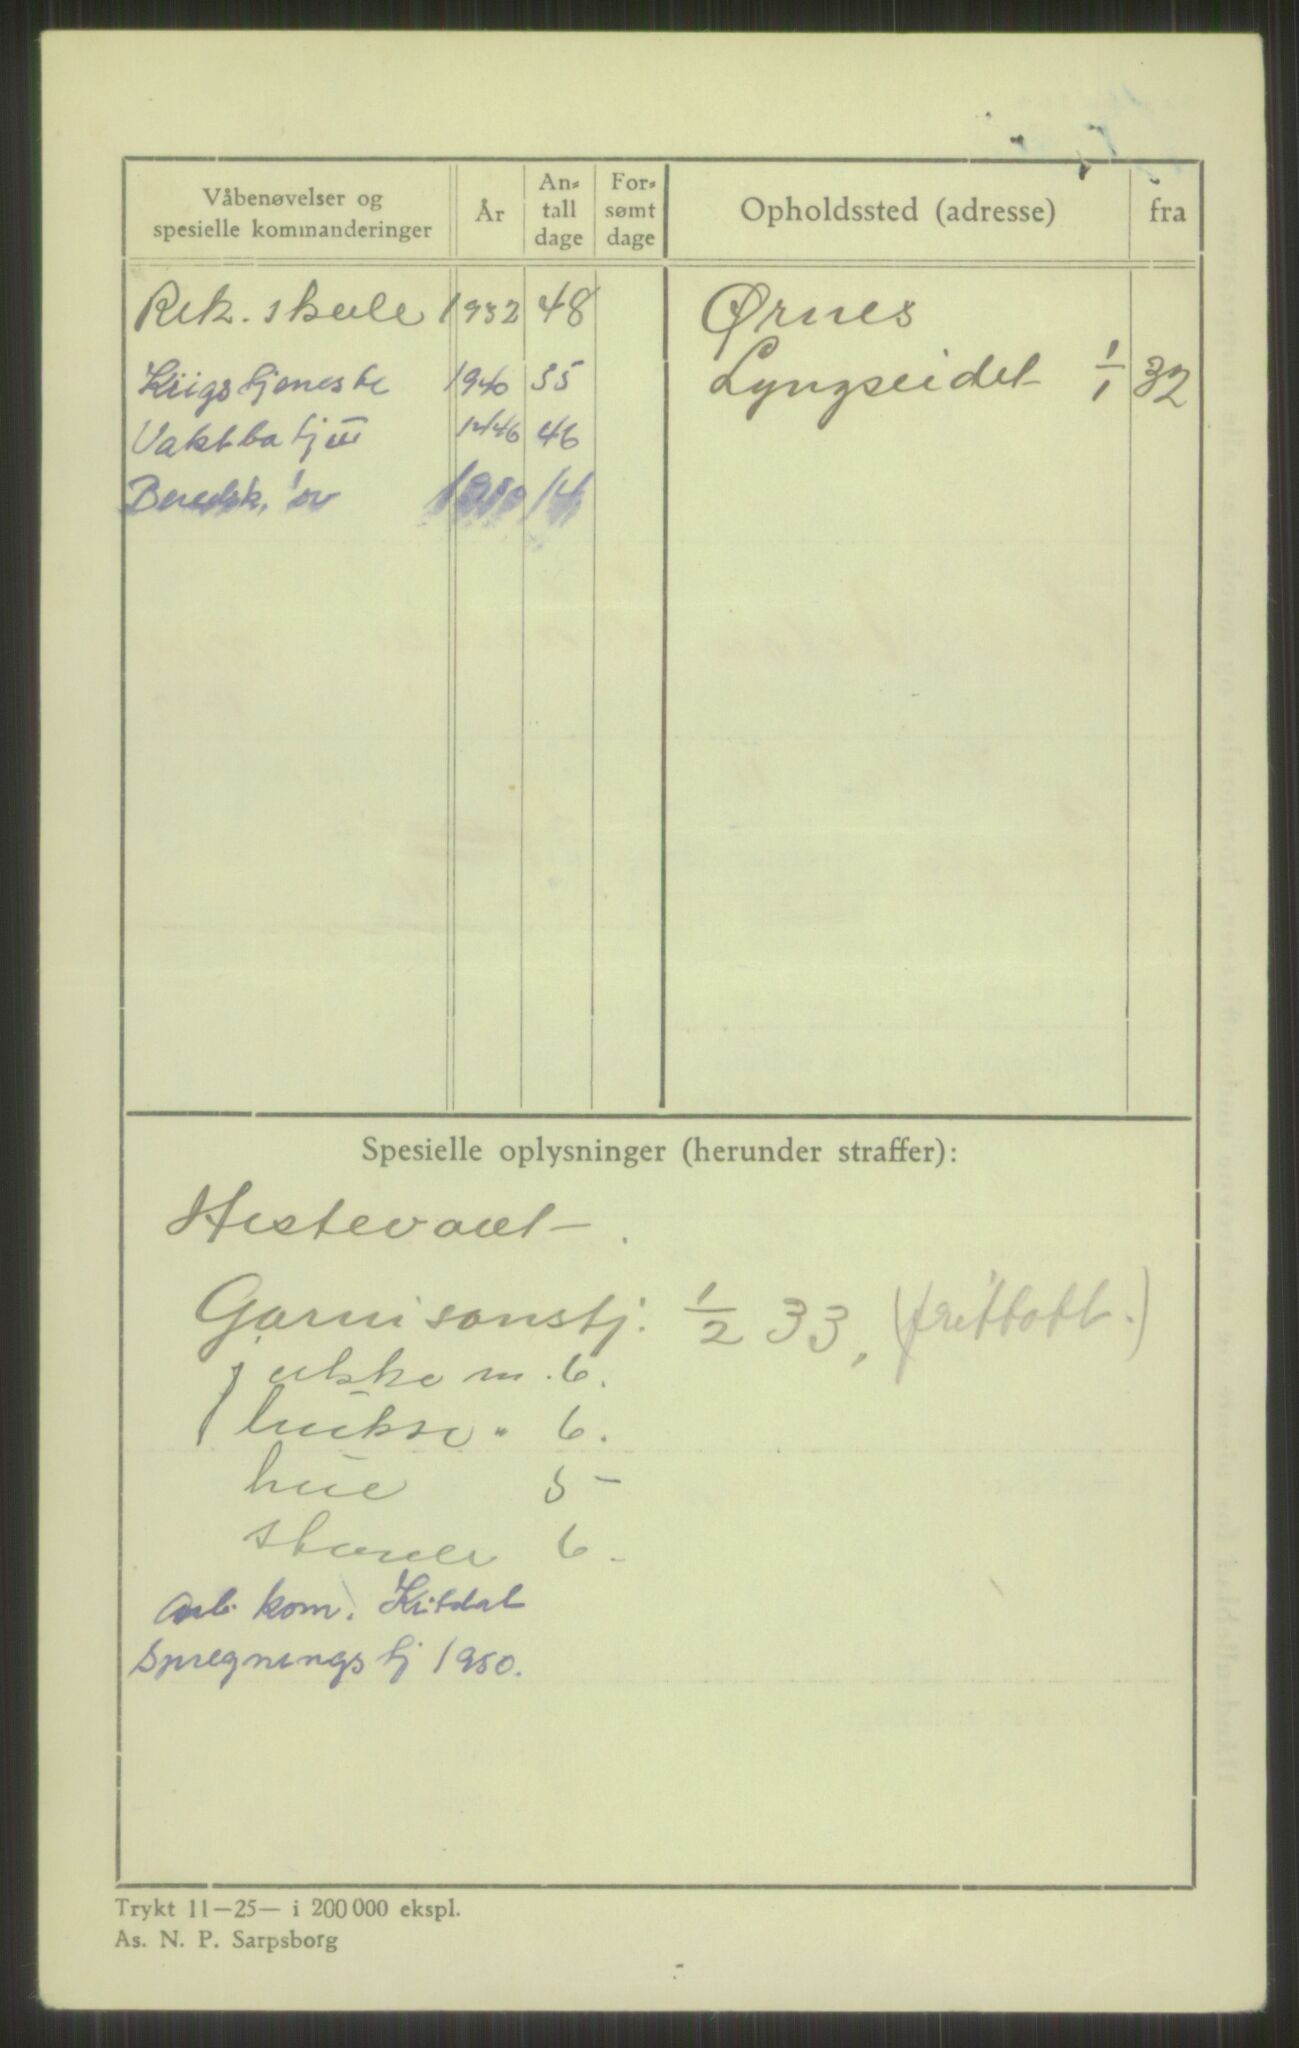 Våbenøvelser og
spesielle kommanderinger
År
An=
tall
dage
For=
sømt
dage
Opholdssted (adresse)
fra
Rek. skule 1932 48
Krigstjeneste 1940 55
Vaktbatj III 12/46 46
Beredsk. øv 1950 14
Ørnes
Lyngseidet 1/1 32
Spesielle oplysninger (herunder straffer):
Hestevant
Garnisonstj. 1/2 33, (fritatt.)
jakke m. 6.
bukse " 6.
hue 5 –
støvle 6.
Arb. kom. Kitdal
Spregningstj 1950.
Trykt 11—25— i 200 000 ekspl.
As. N. P. Sarpsborg